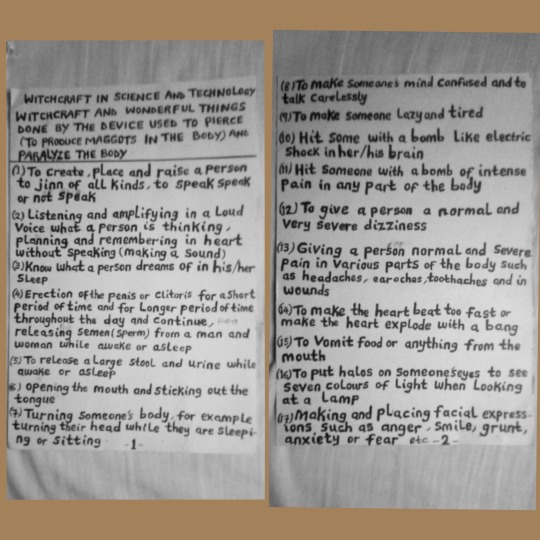 WITCHCRAFT IN SCIENCE AND TECHNOLOGY
WITCHCRAFT AND WONDERFUL THINGS
DONE BY THE DEVICE USED TO PIERCE
(TO PRODUCE MAGGOTS IN THE BODY) AND
PARALYZE THE BODY
(1) To create, place and raise a person
to jinn of all kinds, to speak speak
or not speak
(2) Listening and amplifying in a Loud
Voice what a person is thinking,
planning and remembering in heart
without Speaking (making a Sound)
(3) Know what a person dreams of in his/her
Sleep
(4) Erection of the penis or clitoris for a short
period of time and for Longer period of time
throughout the day and Continue,
releasing Semen (Sperm) from a man and
woman while awake or asleep
(5) To release a large Stool and urine while
awake or asleep
6) opening the mouth and Sticking out the
tongue
(7) Turning Someone's body, for example
turning their head while they are sleepi-
ng or Sitting -1-
(8) To make Someone's mind Confused and to
talk Carelessly
(9) To make someone Lazy and tired
(10) Hit Some with a bomb Like electric
Shock in her/his brain
(11) Hit Someone with a bomb of intense
Pain in any part of the body
(12) To give a person a normal and
Very severe dizziness
(13) Giving a person normal and Severe
Pain in Various parts of the body Such
as headaches, earaches, toothaches and in
wounds
(14) To make the heart beat too fast or
make the heart explode with a bang
(15) To Vomit food or anything from the
mouth
(16) To put halos on Someone's eyes to see
Seven colours of Light when Looking
at a Lamp
(17) Making and placing facial express-
ions such as anger, Smile, grunt,
anxiety or fear etc -2-